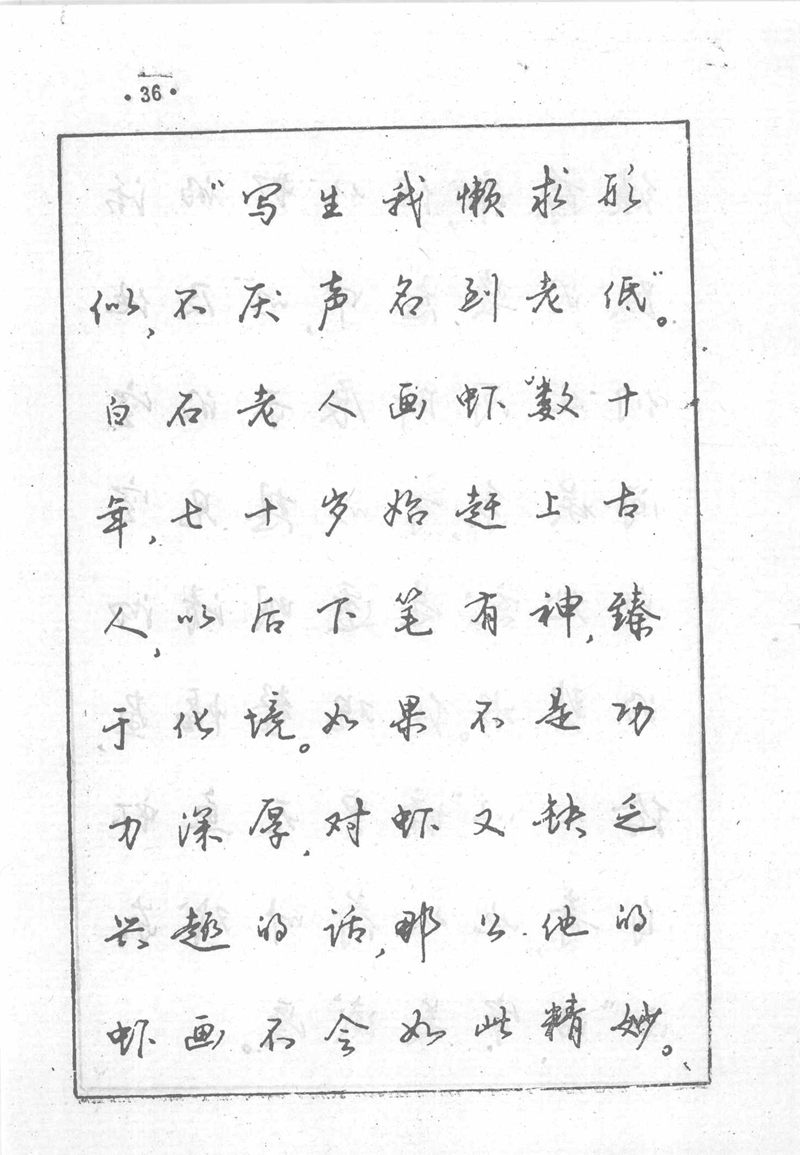 ·36·
“写生我懒求形
似，不厌声名到老低”。
白石老人画虾数十
年，七十岁始赶上古
人，以后下笔有神，臻
于化境。如果不是功
力深厚，对虾又缺乏
兴趣的话，那么他的
虾画不会如此精妙。